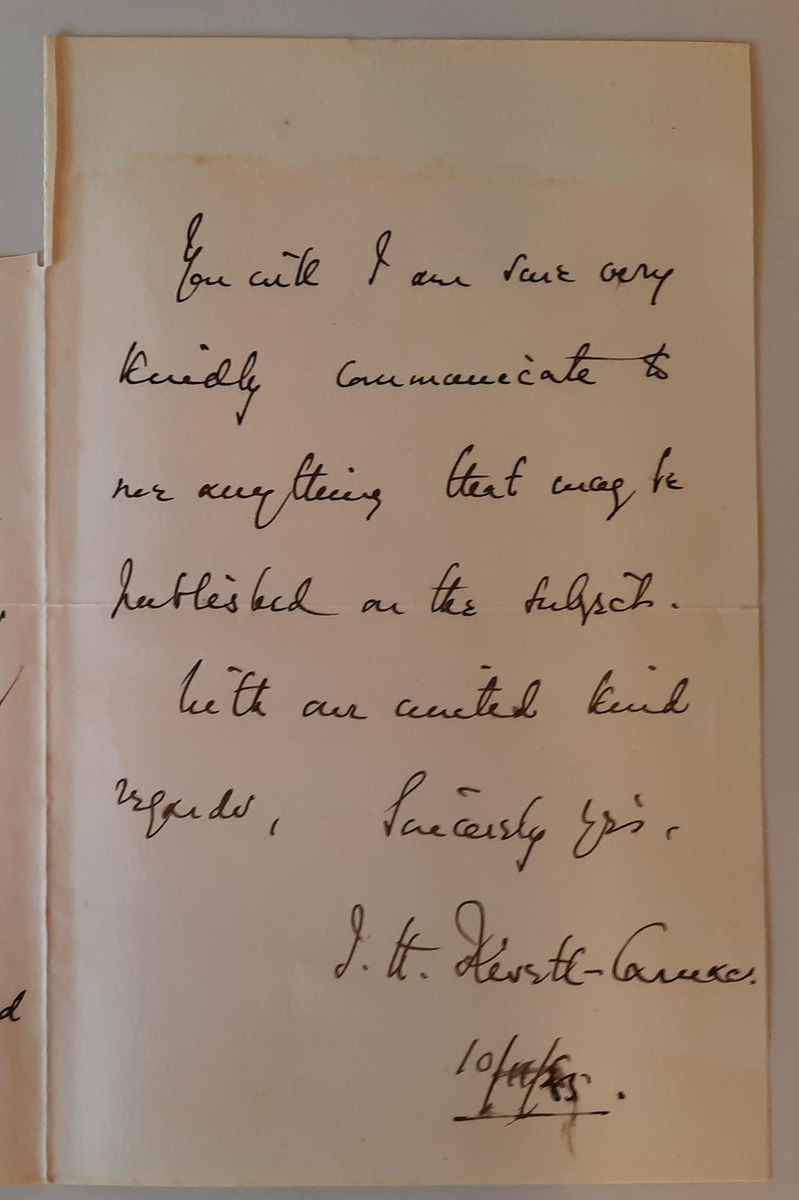 You will I am sure very
kindly communicate to
me anything that may be
published on the subject.
With our united kind
regards, Sincerely yrs,
J. H. Rivett-Carnac.
10/11/85.
d